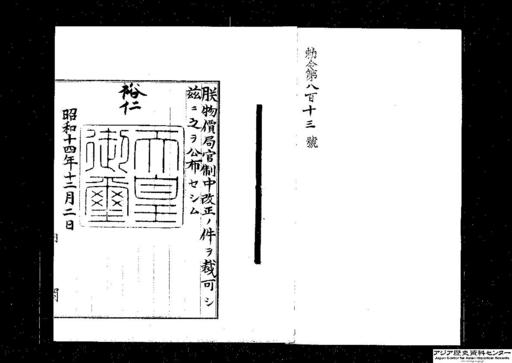 勅令第八百十三號
朕物價局官制中改正ノ件ヲ裁可シ
茲ニ之ヲ公布セシム
裕仁
天皇
御璽
昭和十四年十二月二日
内閣
アジア歴史資料センター
Japan Center for Asian Historical Records